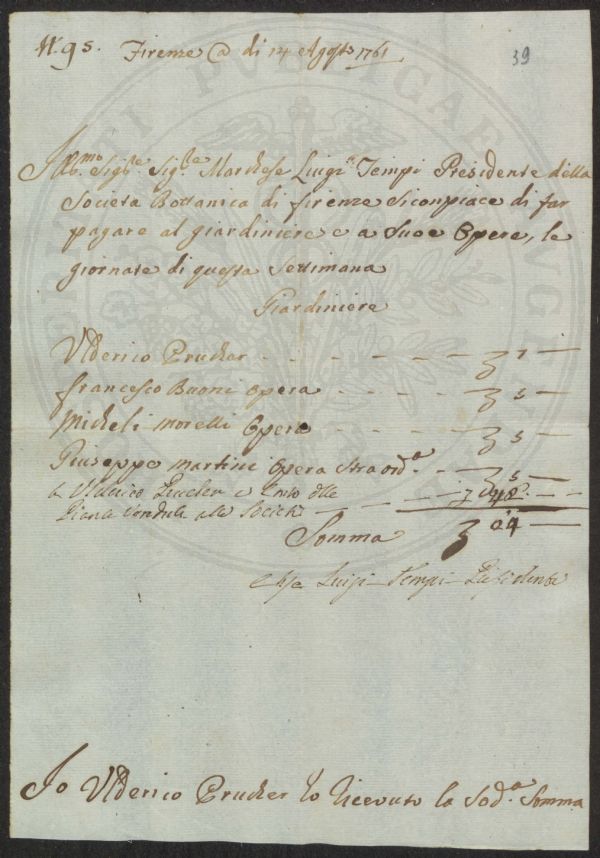 N. 95. Firenze @ di 14 Agosto 1761
39
Ill.mo Sig.le Sig.le Marchese Luigi Tempi Presidente della
Societa Bottanica di firenze Siconpiace di far
pagare al giardiniere e a Suoe Opere, le
giornate di questa Settimana
Giardiniere
Ulderico Prucher - - - - - - 7 -
francesco Buoni Opera - - - - 5 -
Micheli Morelli Opera - - - 5 -
Giuseppe Martini Opera Straord.a - 5 -
a Ulderico Prucher e Conto delle
Piante Vendute alla Società - - -
Somma 04 -
Luigi Tempi Presidente
Io Ulderico Prucher ho Ricevuto la Sod.a Somma